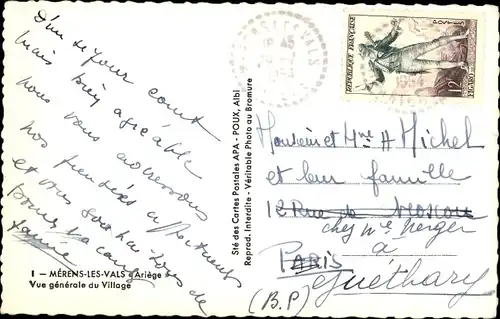 D'un séjour court
mais bien agréable
nous vous adressons
nos pensées affectueuses
et vous souhaitons de
bonnes vacances
1 - MÉRENS-LES-VALS (Ariège)
Vue générale du Village
Sté des Cartes Postales APA - POUX, Albi
Reprod. Interdite - Véritable Photo au Bromure
RÉPUBLIQUE FRANÇAISE
POSTES
12F
FIGARO
Monsieur et Mme H Michel
et leur famille
12 Rue de Moscou
chez Me Berger
à
PARIS
Guéthary
(B.P)